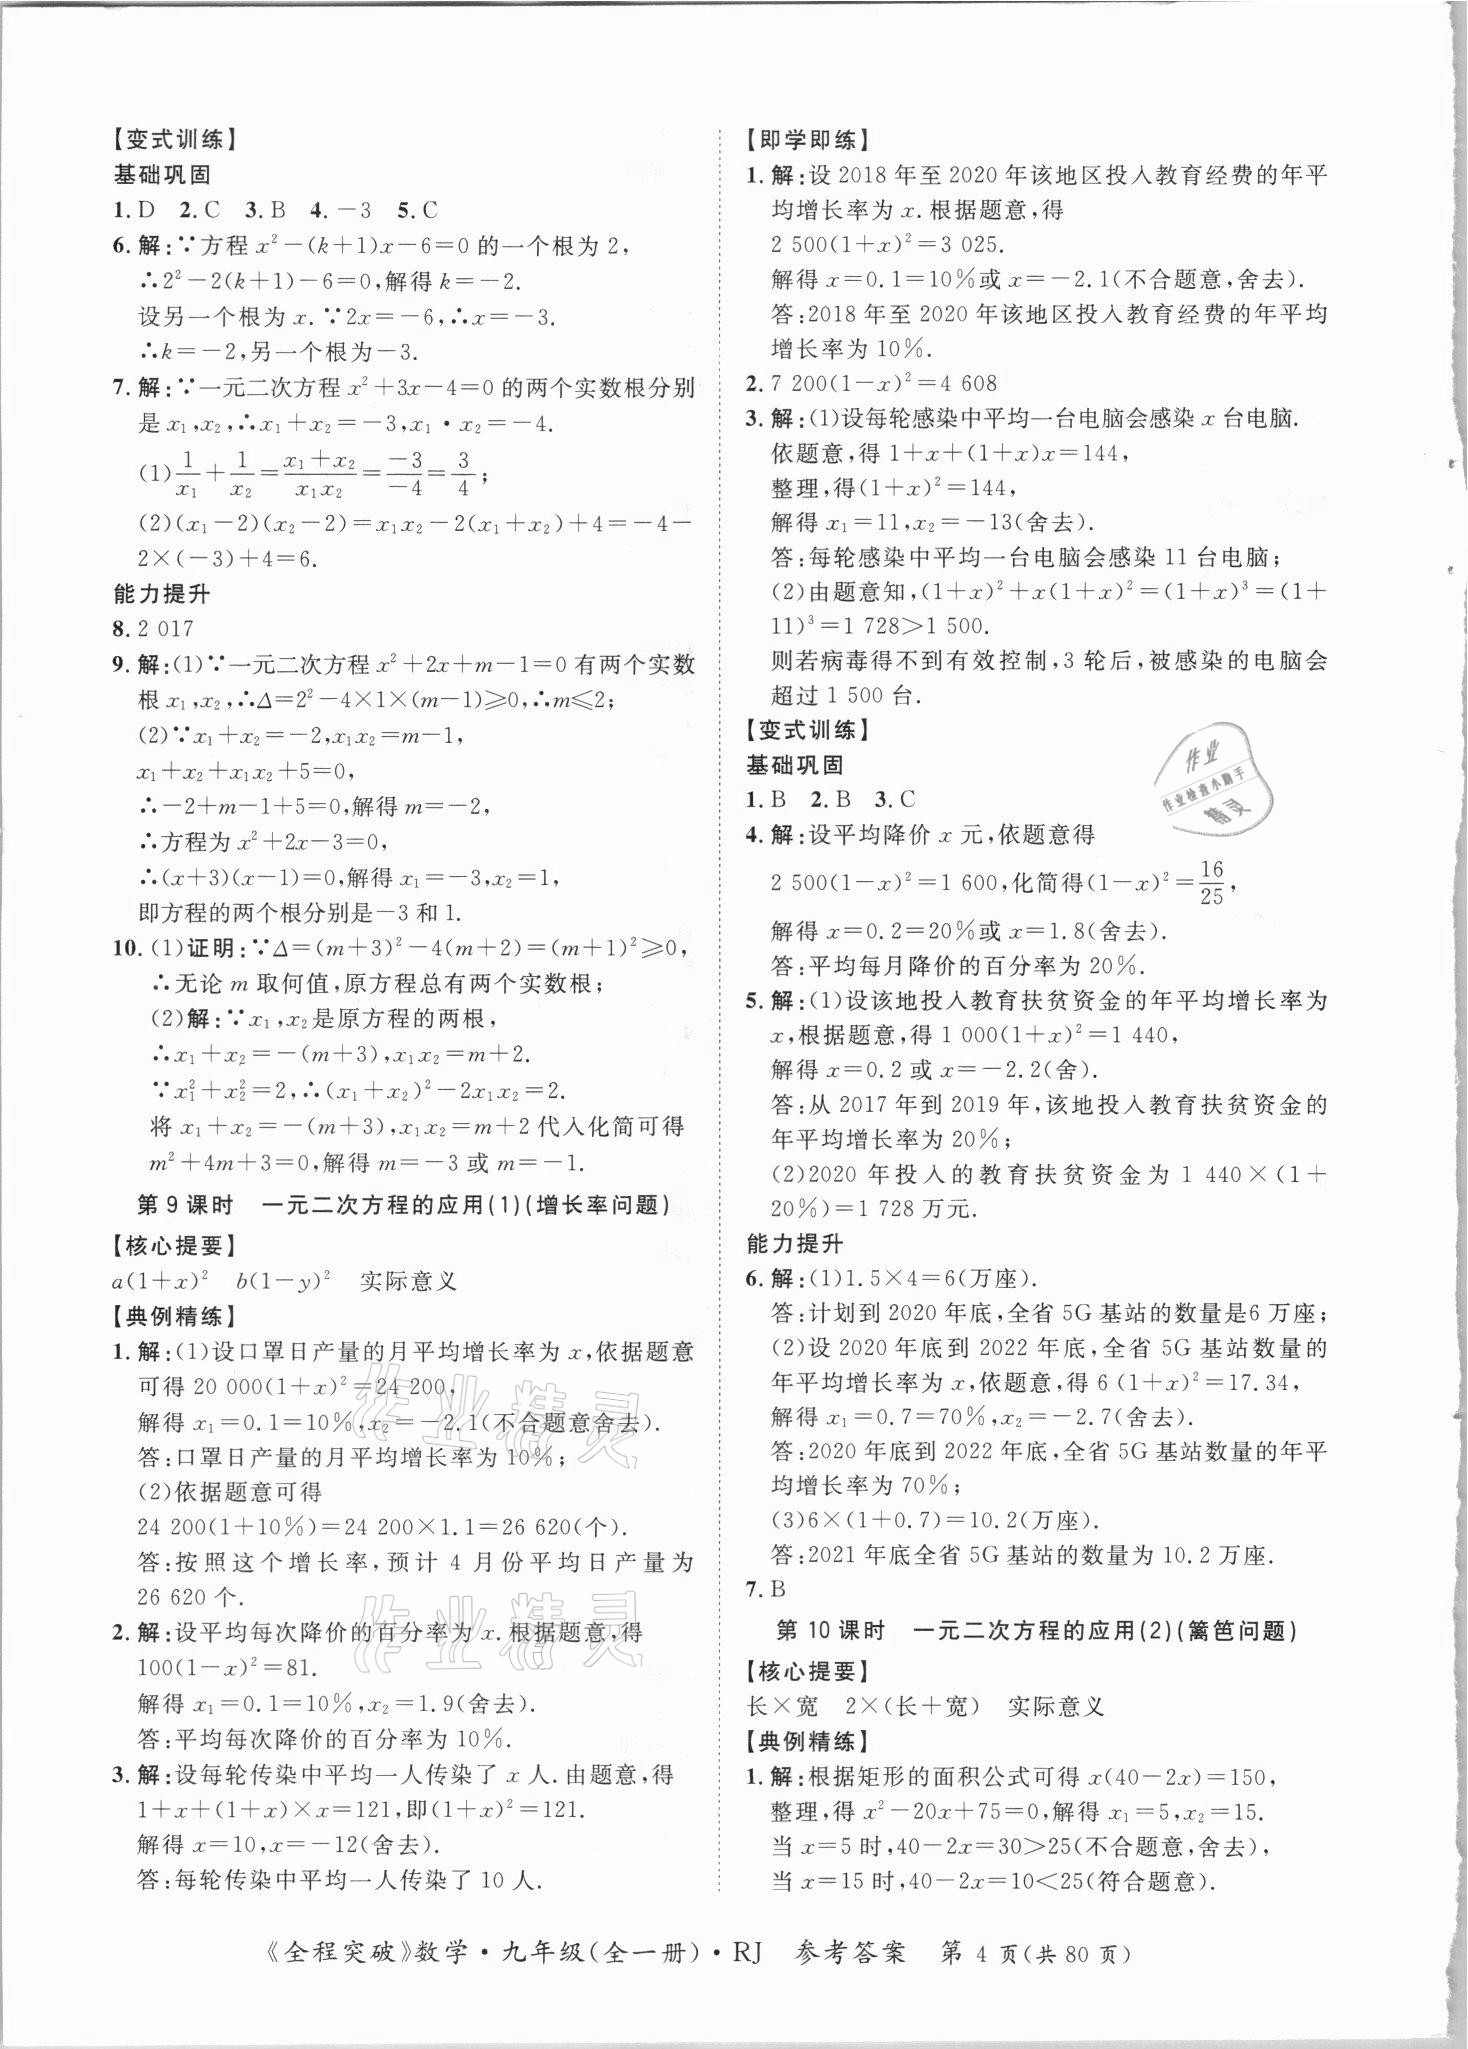 【变式训练】
基础巩固
1. D  2. C  3. B  4. －3  5. C
6. 解:∵方程 x²－(k＋1)x－6＝0 的一个根为 2,
∴2²－2(k＋1)－6＝0,解得 k＝－2.
设另一个根为 x. ∵2x＝－6,∴x＝－3.
∴k＝－2,另一个根为－3.
7. 解:∵一元二次方程 x²＋3x－4＝0 的两个实数根分别
是 x₁,x₂,∴x₁＋x₂＝－3,x₁·x₂＝－4.
(1)1/x₁＋1/x₂＝(x₁＋x₂)/(x₁x₂)＝－3/－4＝3/4;
(2)(x₁－2)(x₂－2)＝x₁x₂－2(x₁＋x₂)＋4＝－4－
2×(－3)＋4＝6.
能力提升
8. 2 017
9. 解:(1)∵一元二次方程 x²＋2x＋m－1＝0 有两个实数
根 x₁,x₂,∴Δ＝2²－4×1×(m－1)≥0,∴m≤2;
(2)∵x₁＋x₂＝－2,x₁x₂＝m－1,
x₁＋x₂＋x₁x₂＋5＝0,
∴－2＋m－1＋5＝0,解得 m＝－2,
∴方程为 x²＋2x－3＝0,
∴(x＋3)(x－1)＝0,解得 x₁＝－3,x₂＝1,
即方程的两个根分别是－3 和 1.
10. (1)证明:∵Δ＝(m＋3)²－4(m＋2)＝(m＋1)²≥0,
∴无论 m 取何值,原方程总有两个实数根;
(2)解:∵x₁,x₂是原方程的两根,
∴x₁＋x₂＝－(m＋3),x₁x₂＝m＋2.
∵x₁²＋x₂²＝2,∴(x₁＋x₂)²－2x₁x₂＝2.
将 x₁＋x₂＝－(m＋3),x₁x₂＝m＋2 代入化简可得
m²＋4m＋3＝0,解得 m＝－3 或 m＝－1.
第 9 课时 一元二次方程的应用(1)(增长率问题)
【核心提要】
a(1＋x)²  b(1－y)²  实际意义
【典例精练】
1. 解:(1)设口罩日产量的月平均增长率为 x,依据题意
可得 20 000(1＋x)²＝24 200,
解得 x₁＝0.1＝10%,x₂＝－2.1(不合题意舍去).
答:口罩日产量的月平均增长率为 10%;
(2)依据题意可得
24 200(1＋10%)＝24 200×1.1＝26 620(个).
答:按照这个增长率,预计 4 月份平均日产量为
26 620 个.
2. 解:设平均每次降价的百分率为 x. 根据题意,得
100(1－x)²＝81.
解得 x₁＝0.1＝10%,x₂＝1.9(舍去).
答:平均每次降价的百分率为 10%.
3. 解:设每轮传染中平均一人传染了 x 人. 由题意,得
1＋x＋(1＋x)×x＝121,即(1＋x)²＝121.
解得 x＝10,x＝－12(舍去).
答:每轮传染中平均一人传染了 10 人.
【即学即练】
1. 解:设 2018 年至 2020 年该地区投入教育经费的年平
均增长率为 x. 根据题意,得
2 500(1＋x)²＝3 025.
解得 x＝0.1＝10%或 x＝－2.1(不合题意,舍去).
答:2018 年至 2020 年该地区投入教育经费的年平均
增长率为 10%.
2. 7 200(1－x)²＝4 608
3. 解:(1)设每轮感染中平均一台电脑会感染 x 台电脑.
依题意,得 1＋x＋(1＋x)x＝144,
整理,得(1＋x)²＝144,
解得 x₁＝11,x₂＝－13(舍去).
答:每轮感染中平均一台电脑会感染 11 台电脑;
(2)由题意知,(1＋x)²＋x(1＋x)²＝(1＋x)³＝(1＋
11)³＝1 728＞1 500.
则若病毒得不到有效控制,3 轮后,被感染的电脑会
超过 1 500 台.
【变式训练】
基础巩固
1. B  2. B  3. C
4. 解:设平均降价 x 元,依题意得
2 500(1－x)²＝1 600,化简得(1－x)²＝16/25,
解得 x＝0.2＝20%或 x＝1.8(舍去).
答:平均每月降价的百分率为 20%.
5. 解:(1)设该地投入教育扶贫资金的年平均增长率为
x,根据题意,得 1 000(1＋x)²＝1 440,
解得 x＝0.2 或 x＝－2.2(舍).
答:从 2017 年到 2019 年,该地投入教育扶贫资金的
年平均增长率为 20%;
(2)2020 年投入的教育扶贫资金为 1 440×(1＋
20%)＝1 728 万元.
能力提升
6. 解:(1)1.5×4＝6(万座).
答:计划到 2020 年底,全省 5G 基站的数量是6 万座;
(2)设 2020 年底到 2022 年底,全省 5G 基站数量的
年平均增长率为 x,依题意,得 6 (1＋x)²＝17.34,
解得 x₁＝0.7＝70%,x₂＝－2.7(舍去).
答:2020 年底到 2022 年底,全省 5G 基站数量的年平
均增长率为 70%;
(3)6×(1＋0.7)＝10.2(万座).
答:2021 年底全省 5G 基站的数量为 10.2 万座.
7. B
第 10 课时 一元二次方程的应用(2)(篱笆问题)
【核心提要】
长×宽  2×(长＋宽)  实际意义
【典例精练】
1. 解:根据矩形的面积公式可得 x(40－2x)＝150,
整理,得 x²－20x＋75＝0,解得 x₁＝5,x₂＝15.
当 x＝5 时,40－2x＝30＞25(不合题意,舍去),
当 x＝15 时,40－2x＝10＜25(符合题意).
作业
作业检查小助手
精灵
作业精灵
作业精灵
《全程突破》数学·九年级(全一册)·RJ 参考答案 第 4 页(共 80 页)